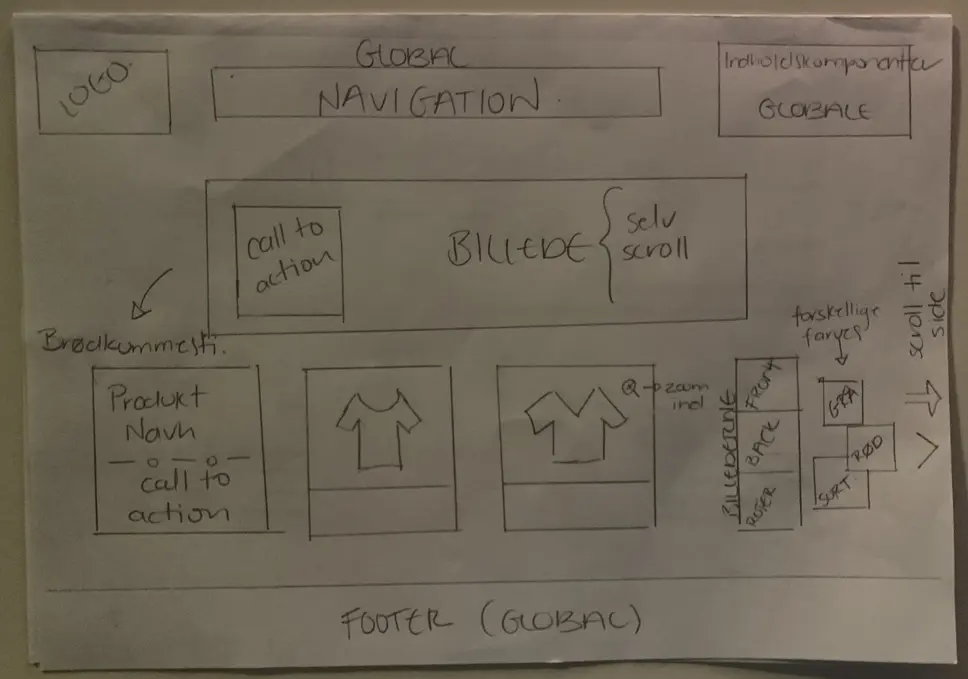 LOGO
GLOBAL
NAVIGATION
Indholdskomponenter
GLOBALE
call to
action
BILLEDE
selv
scroll
Brødkummesti.
Produkt
Navn
call to
action
zoom
ind
BILLEDERNE
FRONT
BACK
ROTER
forskellige
farver
GRÅ
RØD
SORT
scroll til
side
FOOTER (GLOBAL)